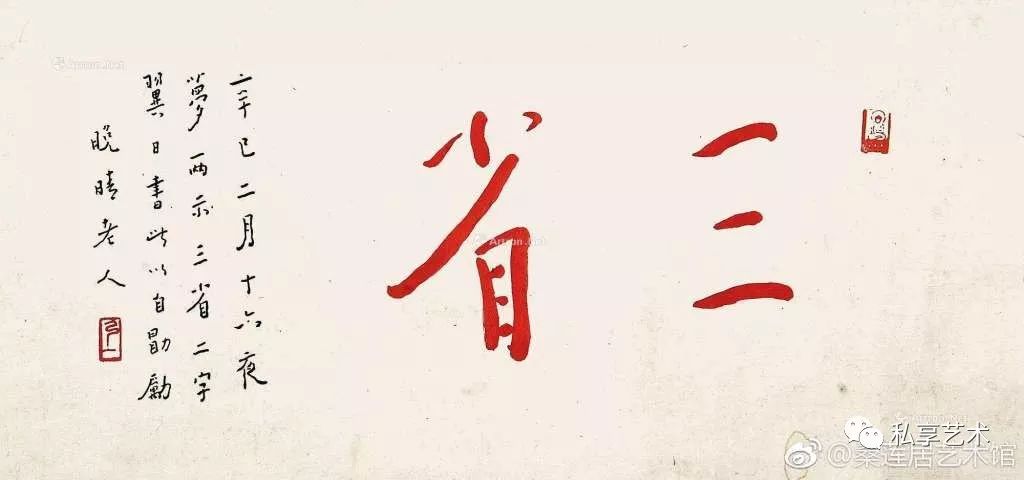 三省
辛巳二月十六夜
夢兩示三省二字
翼日書此以自勖勵
晚晴老人
Artron.Net
Artron.Net
Artron.Net
私享艺术
@桑莲居艺术馆